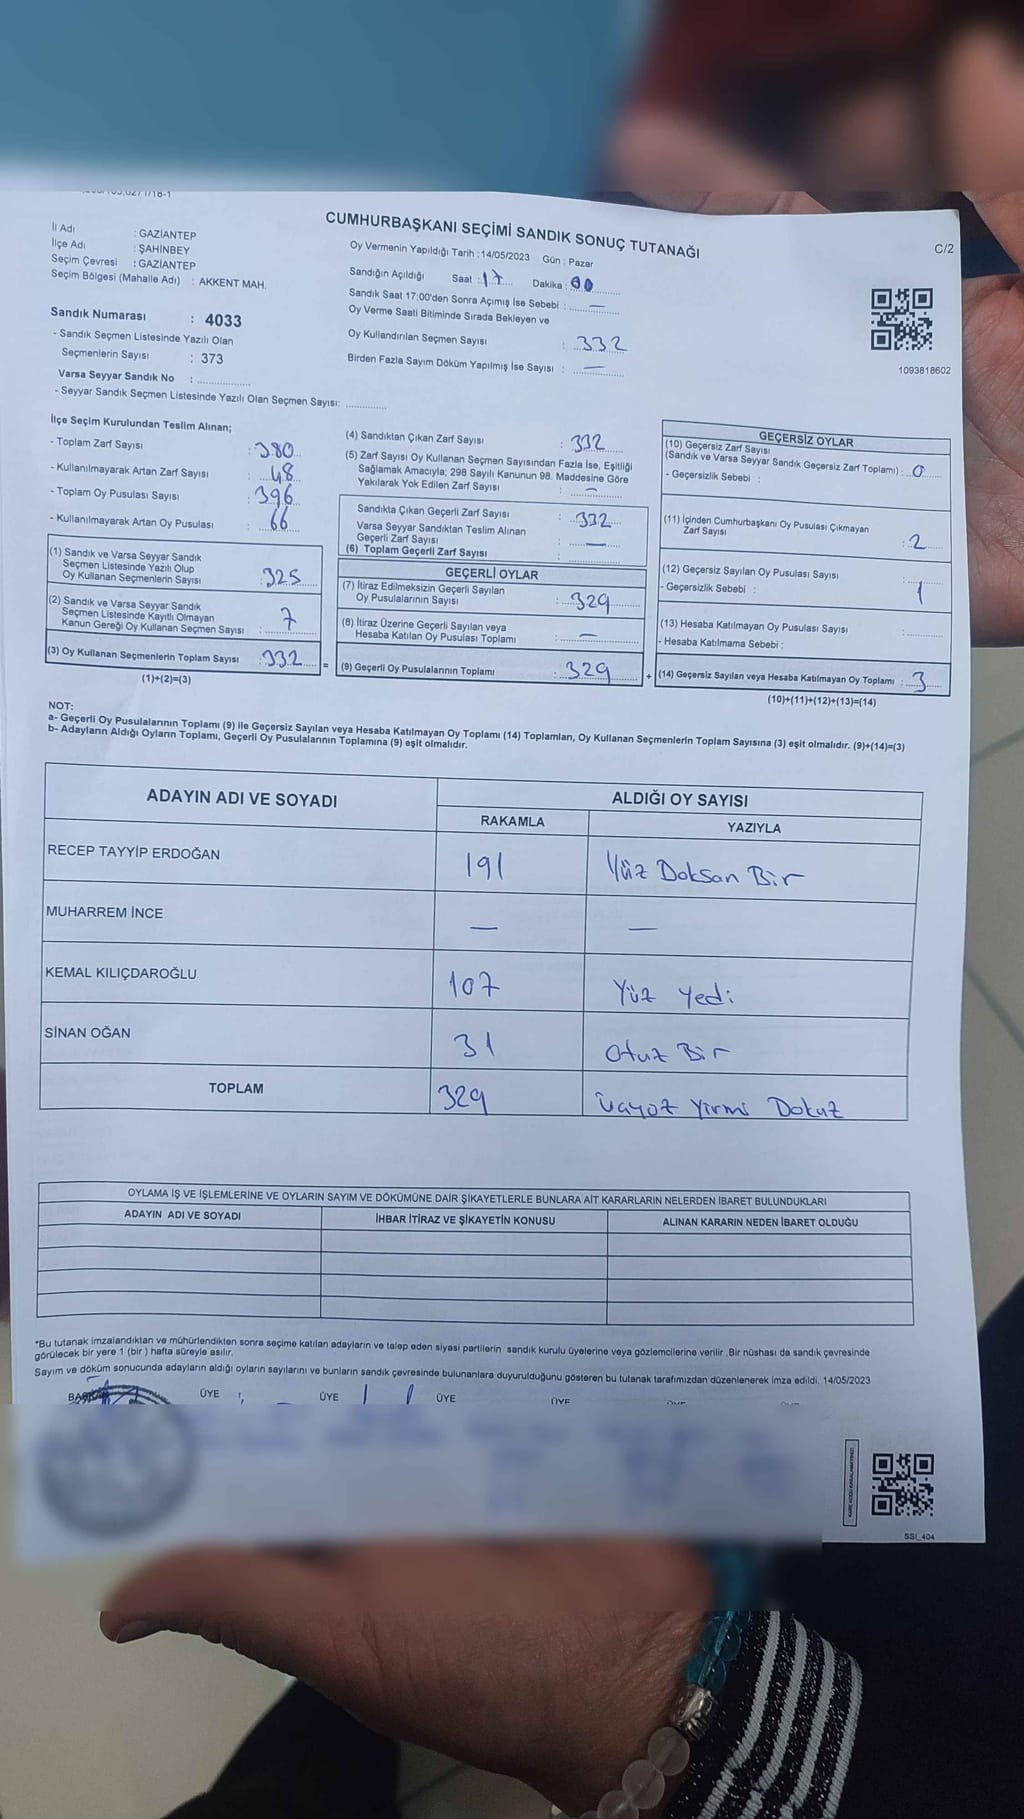 CUMHURBAŞKANI SEÇİMİ SANDIK SONUÇ TUTANAĞI
C/2
İl Adı : GAZİANTEP
İlçe Adı : ŞAHİNBEY
Seçim Çevresi : GAZİANTEP
Seçim Bölgesi (Mahalle Adı) : AKKENT MAH.
Sandık Numarası : 4033
- Sandık Seçmen Listesinde Yazılı Olan
Seçmenlerin Sayısı : 373
Varsa Seyyar Sandık No :
- Seyyar Sandık Seçmen Listesinde Yazılı Olan Seçmen Sayısı:
Oy Vermenin Yapıldığı Tarih : 14/05/2023 Gün : Pazar
Sandığın Açıldığı Saat : 17 Dakika : 00
Sandık Saat 17:00'den Sonra Açımış İse Sebebi : —
Oy Verme Saati Bitiminde Sırada Bekleyen ve
Oy Kullandırılan Seçmen Sayısı : 332
Birden Fazla Sayım Döküm Yapılmış İse Sayısı : —
1093818602
İlçe Seçim Kurulundan Teslim Alınan;
- Toplam Zarf Sayısı : 380
- Kullanılmayarak Artan Zarf Sayısı : 48
- Toplam Oy Pusulası Sayısı : 396
- Kullanılmayarak Artan Oy Pusulası : 66
(1) Sandık ve Varsa Seyyar Sandık
Seçmen Listesinde Yazılı Olup
Oy Kullanan Seçmenlerin Sayısı : 325
(2) Sandık ve Varsa Seyyar Sandık
Seçmen Listesinde Kayıtlı Olmayan
Kanun Gereği Oy Kullanan Seçmen Sayısı : 7
(3) Oy Kullanan Seçmenlerin Toplam Sayısı : 332 =
(1)+(2)=(3)
(4) Sandıktan Çıkan Zarf Sayısı : 332
(5) Zarf Sayısı Oy Kullanan Seçmen Sayısından Fazla İse, Eşitliği
Sağlamak Amacıyla; 298 Sayılı Kanunun 98. Maddesine Göre
Yakılarak Yok Edilen Zarf Sayısı : —
Sandıkta Çıkan Geçerli Zarf Sayısı : 332
Varsa Seyyar Sandıktan Teslim Alınan
Geçerli Zarf Sayısı : —
(6) Toplam Geçerli Zarf Sayısı :
GEÇERLİ OYLAR
(7) İtiraz Edilmeksizin Geçerli Sayılan
Oy Pusulalarının Sayısı : 329
(8) İtiraz Üzerine Geçerli Sayılan veya
Hesaba Katılan Oy Pusulası Toplamı : —
(9) Geçerli Oy Pusulalarının Toplamı : 329 +
GEÇERSİZ OYLAR
(10) Geçersiz Zarf Sayısı
(Sandık ve Varsa Seyyar Sandık Geçersiz Zarf Toplamı) : 0
- Geçersizlik Sebebi :
(11) İçinden Cumhurbaşkanı Oy Pusulası Çıkmayan
Zarf Sayısı : 2
(12) Geçersiz Sayılan Oy Pusulası Sayısı : 1
- Geçersizlik Sebebi :
(13) Hesaba Katılmayan Oy Pusulası Sayısı :
- Hesaba Katılmama Sebebi :
(14) Geçersiz Sayılan veya Hesaba Katılmayan Oy Toplamı : 3
(10)+(11)+(12)+(13)=(14)
NOT:
a- Geçerli Oy Pusulalarının Toplamı (9) ile Geçersiz Sayılan veya Hesaba Katılmayan Oy Toplamı (14) Toplamları, Oy Kullanan Seçmenlerin Toplam Sayısına (3) eşit olmalıdır. (9)+(14)=(3)
b- Adayların Aldığı Oyların Toplamı, Geçerli Oy Pusulalarının Toplamına (9) eşit olmalıdır.
ADAYIN ADI VE SOYADI ALDIĞI OY SAYISI
RAKAMLA YAZIYLA
RECEP TAYYİP ERDOĞAN 191 Yüz Doksan Bir
MUHARREM İNCE — —
KEMAL KILIÇDAROĞLU 107 Yüz Yedi
SİNAN OĞAN 31 Otuz Bir
TOPLAM 329 Üçyüz Yirmi Dokuz
OYLAMA İŞ VE İŞLEMLERİNE VE OYLARIN SAYIM VE DÖKÜMÜNE DAİR ŞİKAYETLERLE BUNLARA AİT KARARLARIN NELERDEN İBARET BULUNDUKLARI
ADAYIN ADI VE SOYADI İHBAR İTİRAZ VE ŞİKAYETİN KONUSU ALINAN KARARIN NEDEN İBARET OLDUĞU
*Bu tutanak imzalandıktan ve mühürlendikten sonra seçime katılan adayların ve talep eden siyasi partilerin sandık kurulu üyelerine veya gözlemcilerine verilir .Bir nüshası da sandık çevresinde
görülecek bir yere 1 (bir ) hafta süreyle asılır.
Sayım ve döküm sonucunda adayların aldığı oyların sayılarını ve bunların sandık çevresinde bulunanlara duyurulduğunu gösteren bu tutanak tarafımızdan düzenlenerek imza edildi. 14/05/2023
ÜYE ÜYE ÜYE ÜYE
SSI_404